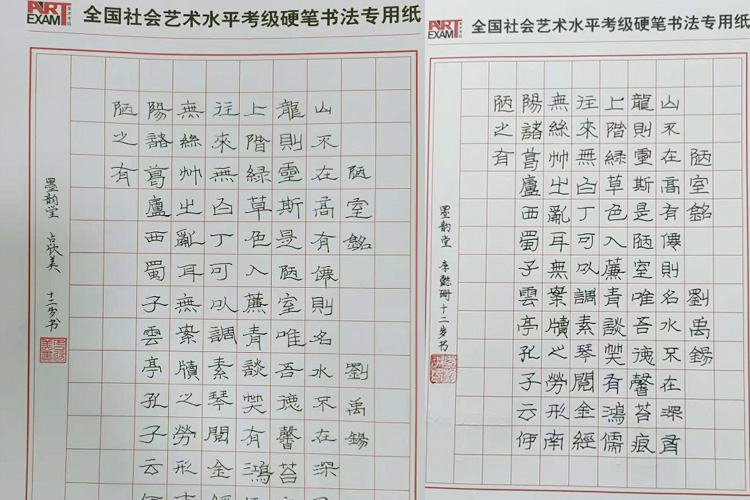 ART EXAM 全国社会艺术水平考级硬笔书法专用纸
陋室銘 劉禹錫
山不在高有僊則名水不在深
龍則靈斯是陋室唯吾德馨苔
上階綠草色入簾青談笑有鴻
往來無白丁可以調素琴閱金
無絲竹之亂耳無案牘之勞形
陽諸葛廬西蜀子雲亭孔子云
陋之有
墨韵堂 占欣美 十二岁书
ART EXAM 全国社会艺术水平考级硬笔书法专用纸
陋室銘 劉禹錫
山不在高有僊則名水不在深有
龍則靈斯是陋室唯吾德馨苔痕
上階綠草色入簾青談笑有鴻儒
往來無白丁可以調素琴閱金經
無絲竹之亂耳無案牘之勞形南
陽諸葛廬西蜀子雲亭孔子云何
陋之有
墨韵堂 李懿珊 十二岁书